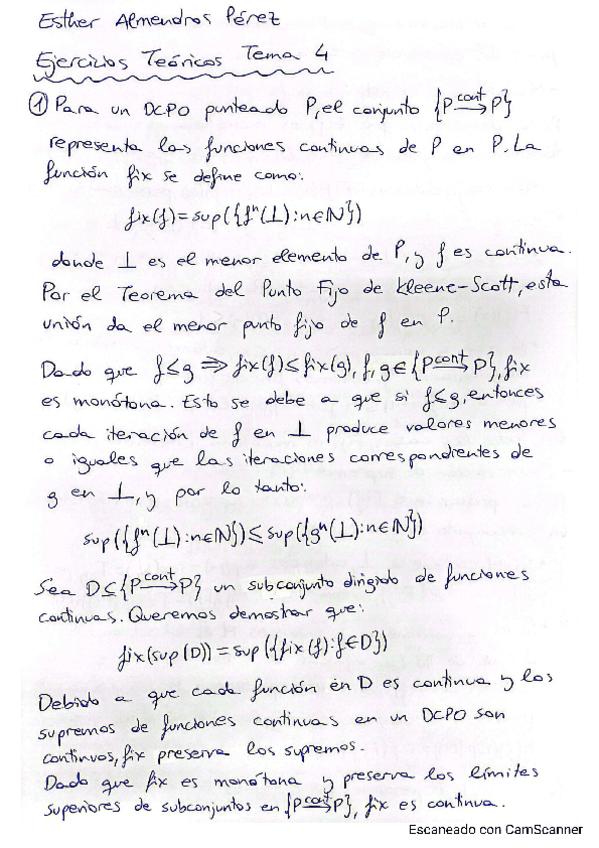 Esther Almendros Pérez
Ejercicios Teóricos Tema 4
① Para un DCPO punteado P, el conjunto {P cont→ P}
representa las funciones continuas de P en P. La
función fix se define como:
fix(f)=sup({fⁿ(⊥):n∈ℕ})
donde ⊥ es el menor elemento de P, y f es continua.
Por el Teorema del Punto Fijo de Kleene-Scott, esta
unión da el menor punto fijo de f en P.
Dado que f≤g ⇒ fix(f)≤fix(g), f,g∈{P cont→ P}, fix
es monótona. Esto se debe a que si f≤g, entonces
cada iteración de f en ⊥ produce valores menores
o iguales que las iteraciones correspondientes de
g en ⊥, y por lo tanto:
sup({fⁿ(⊥):n∈ℕ})≤sup({gⁿ(⊥):n∈ℕ})
Sea D⊆{P cont→ P} un subconjunto dirigido de funciones
continuas. Queremos demostrar que:
fix(sup(D))=sup({fix(f):f∈D})
Debido a que cada función en D es continua y los
supremos de funciones continuas en un DCPO son
continuos, fix preserva los supremos.
Dado que fix es monótona y preserva los límites
superiores de subconjuntos en {P cont→ P}, fix es continua.
Escaneado con CamScanner